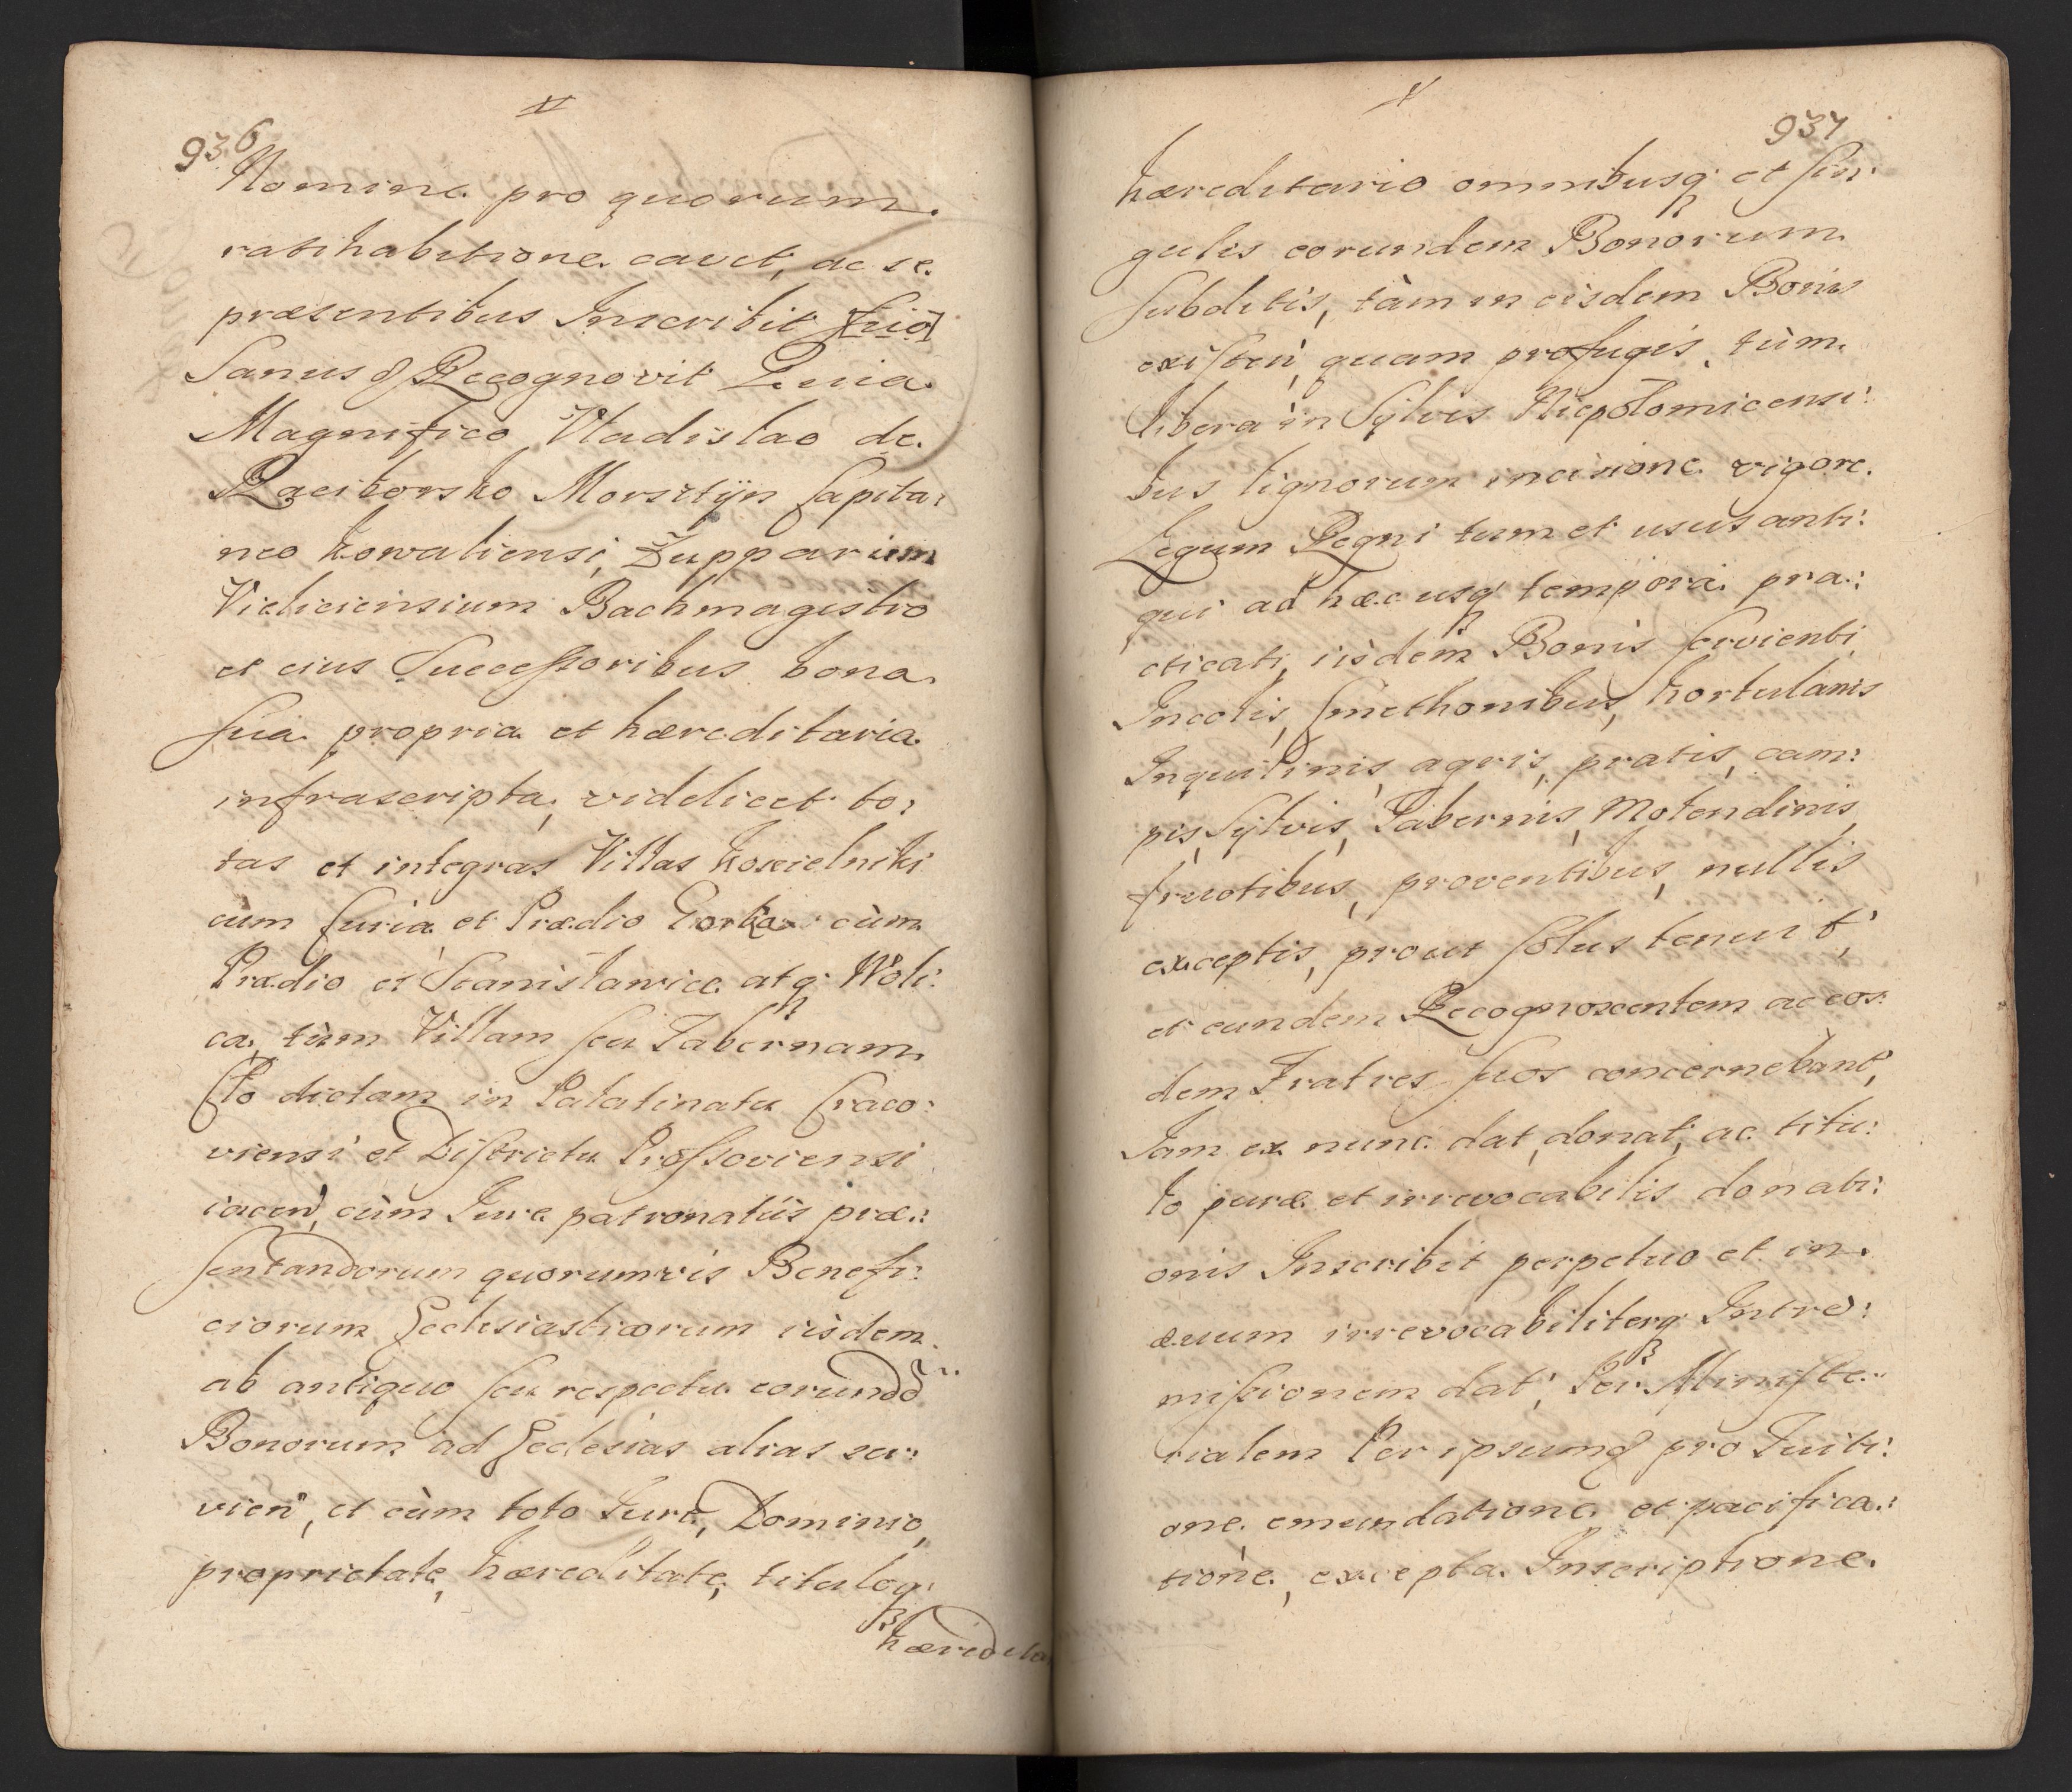 936
Nomine pro quorum
ratihabitione cavet, ac se
præsentibus Inscribit
Sanus Recognovit Quia
Magnifico Vladislao de
Raciborsko Morsztÿn Capita:
neo Kowaliensi, Zupparum
Vieliciensium Bachmagistro
et eius Successoribus bona
sua propria et hæreditaria
infrascripta, videlicet to:
tas et integras Villas Koscielniki
cùm Curia et Prædio Gorka cùm
Prædio et Stanisławice atq Woli:
ca, tùm Villam seu Tabernam
Cło dictam in Palatinatu Craco:
viensi et Districtu Proszoviensi
iacen, cùm Iure patronatûs præ:
sentandorum quorumvis Benefi:
ciorum Ecclesiasticorum iisdem
ab antiquo seu respectu eorund
Bonorum ad Ecclesias alias ser:
vien, et cùm toto Iure, Dominio,
proprietate, hæreditate, tituloq
hæredita
937
hæreditario omnibusq et sin:
gulis eorundem Bonorum
subditis, tàm in eisdem Bonis
existen, quam profugis, tùm
libera in Sÿlvis Niepołomicensi:
bus lignorum incisione vigore
Legum Regni tum et usus anti:
qui ad hæc usq tempora pra:
cticati, iisdem Bonis servienti,
Incolis, Cmethonibus, hortulanis
Inquilinis, agris, pratis, cam:
pis, Sÿlvis, Tabernis, Molendinis,
fructibus, proventibus, nullis
exceptis, prout solus tenuit,
et eundem Recognoscentem ac eos:
dem Fratres suos concernebant,
Iam ex nunc dat, donat, ac titu:
lo puræ et irrevocabilis donati:
onis Inscribit perpetuo et in
ævum irrevocabiliterq Intro:
missionem dat, Per Ministe:
rialem Per ipsum pro Tuiti:
one, emundatione et pacifica:
tione, excepta Inscriptione